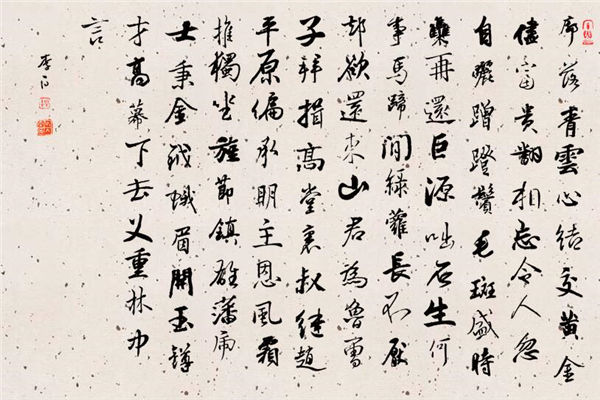 廓落青雲心結交黄金
儘富貴翻相忘令人忽
自曬蹭蹬鬢毛斑盛時
難再還巨源咄石生何
事馬蹄間綠蘿長不厭
却欲還東山君為魯曾
子拜揖高堂裏叔繼趙
平原偏承明主恩風霜
推獨坐旌節鎮雄藩虎
士秉金鉞蛾眉開玉鐏
才高幕下去义重林中
言
李